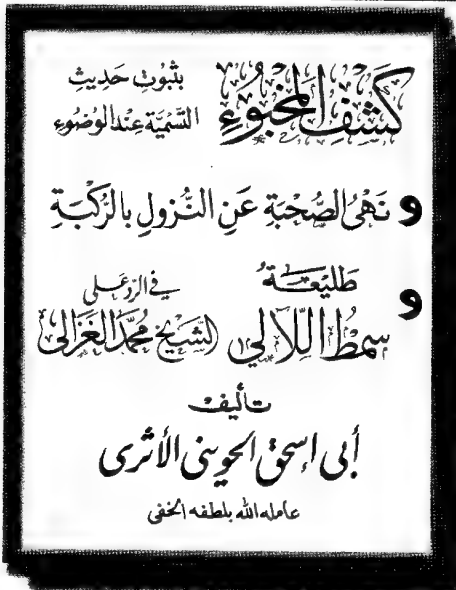 كَشْفُ المَخْبُوءِ
بثُبُوتِ حَدِيثِ
التَّسْمِيَةِ عِنْدَ الوُضُوءِ
و نَهْيُ الصُّحْبَةِ عَنِ النُّزُولِ بالرُّكْبَةِ
و طَلِيْعَةُ
سِمْطُ اللَّآلِي في الرد على الشَّيْخِ مُحَمَّد الغَزَالي
تأليف
أبى إسحق الحوينى الأثرى
عامله الله بلطفه الخفى